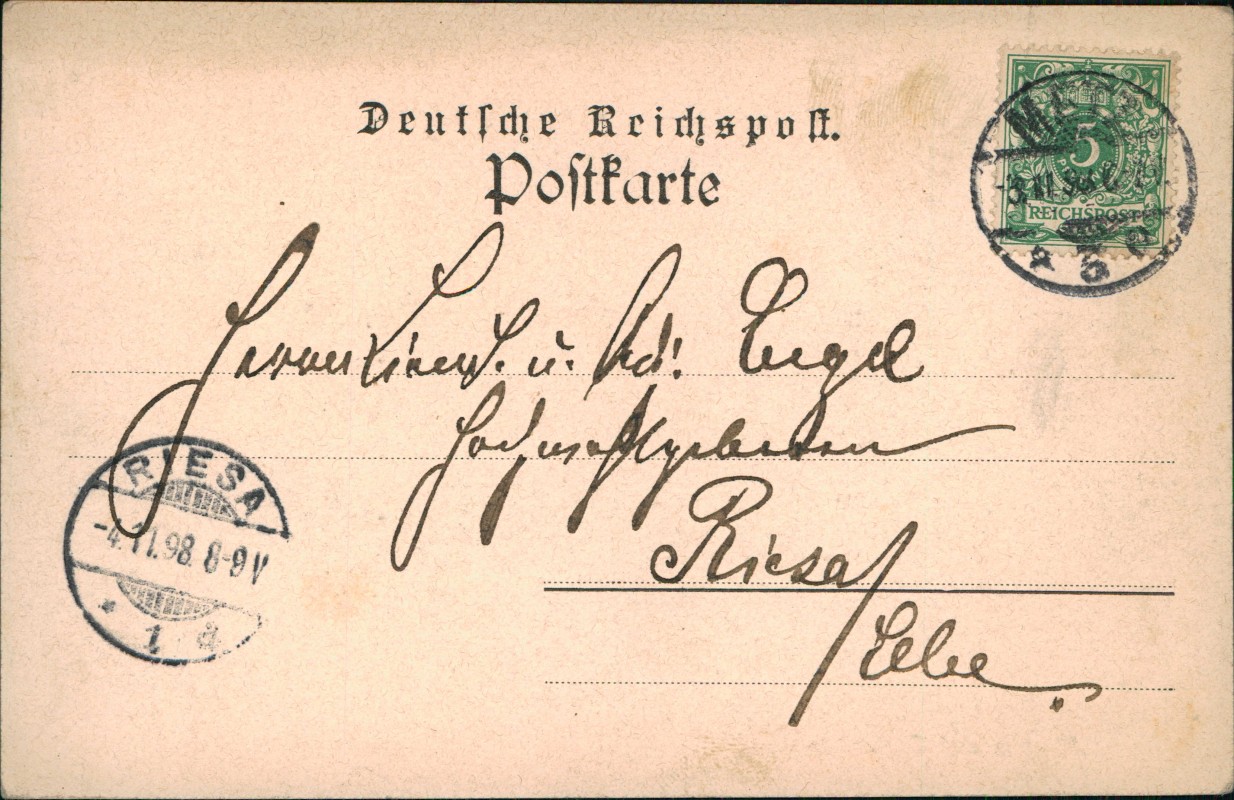 Deutsche Reichspost.
Postkarte
5
REICHSPOST
-3.11.98.
Herrn Lieut. u. Adj. Engel
Hochwohlgeboren
Riesa/
Elbe.
RIESA
-4.11.98. 8-9V
* 1 d